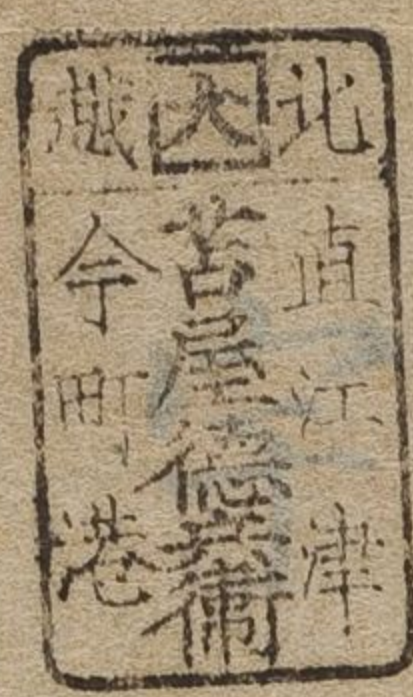 北 大 越
直江津
苫屋德兵衛
今町港